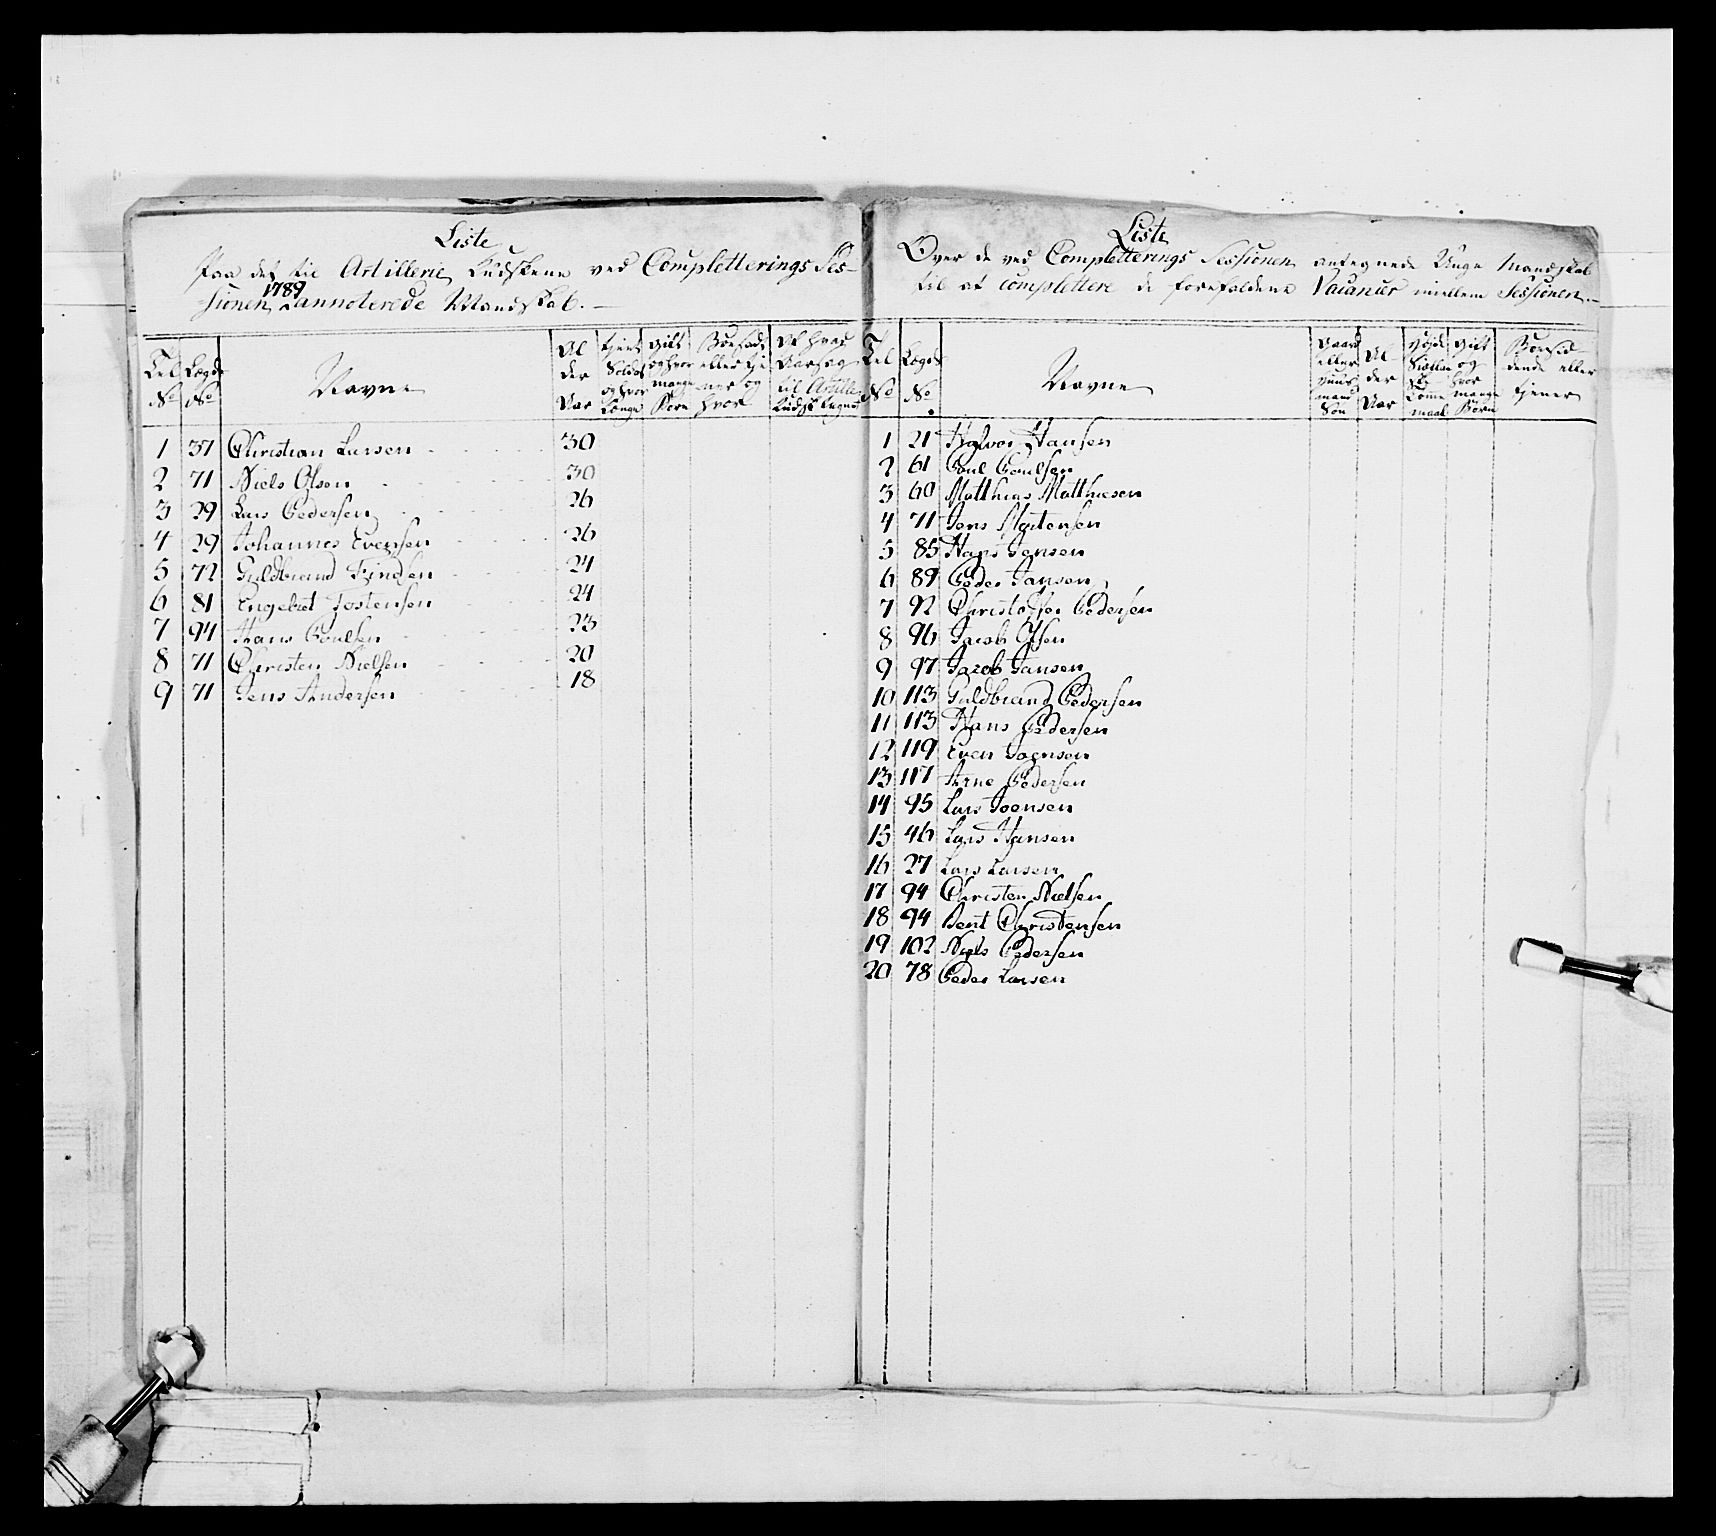 Liste
Paa det til Artillerie Kudskene ved Completterings Ses-
sionen 1789 annoterede Mandskab. —
Tal No
Lægds No
Navne
Al der Aar
tjent Soldat og hvor Længe
gift og hvor mange Børn
Bonsatt eller tje ner og hvor
Af hvad Aarsag til Artille Kudsk tegnet
1 37 Christian Larsen 30
2 71 Niels Olsen 30
3 29 Lars Pedersen 26
4 29 Johannes Evensen 26
5 72 Guldbrand Findsen 24
6 81 Engebret Jostensen 24
7 94 Hans Poulsen 23
8 71 Christen Nielsen 20
9 71 Jens Andersen 18
Liste
Over de ved Completterings Sessionen antegnede Unge Mandskab
til at complettere de forefaldene Vacancer imellem Sessionen. —
Tal No
Lægds No
Navne
Gaard eller Huus mand Søn
Al der Aar
Høyde Siællandske Tomme maal
Gift og hvor mange Børn
Bonsid dende eller tjener
1 21 Halvor Hansen
2 61 Poul Poulsen
3 60 Matthias Matthiesen
4 71 Jens Mortensen
5 85 Hans Jensen
6 89 Peder Jansen
7 92 Christopher Pedersen
8 96 Jacob Olsen
9 97 Jacob Jansen
10 113 Guldbrand Pedersen
11 113 Hans Pedersen
12 119 Even Joensen
13 117 Arne Pedersen
14 95 Lars Joensen
15 46 Lars Hansen
16 27 Lars Larsen
17 94 Christen Nielsen
18 94 Bent Christensen
19 102 Niels Pedersen
20 78 Peder Larsen